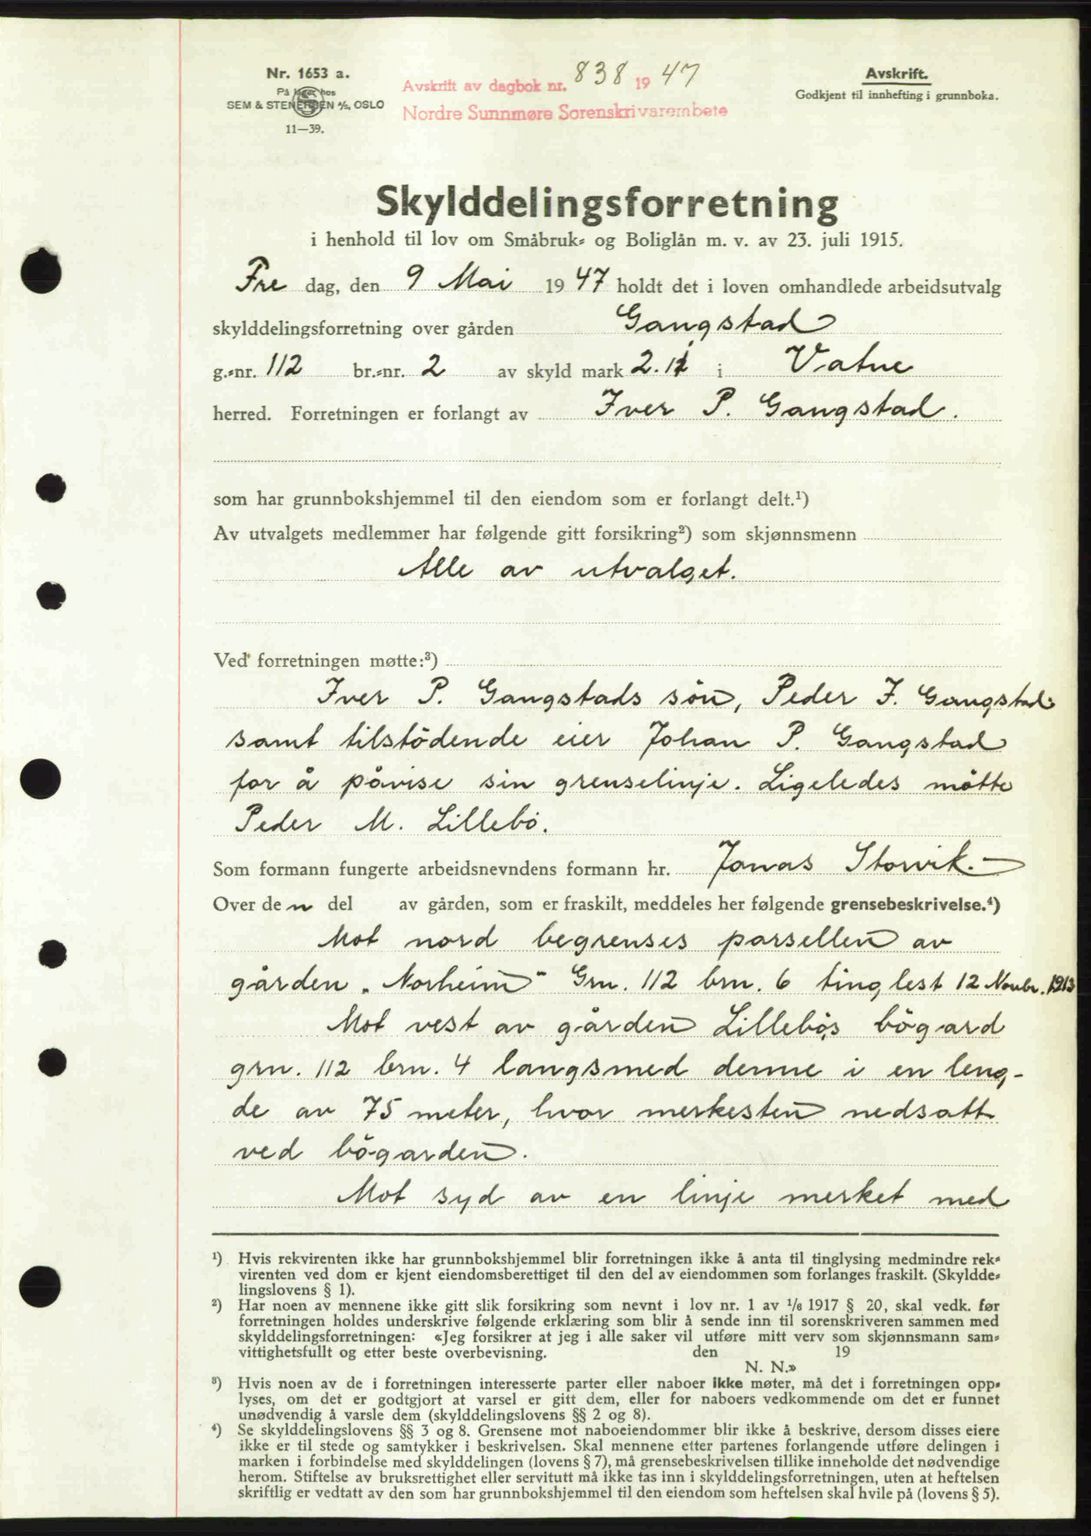 Nr. 1653 a.
På lager hos
SEM & STENERSEN A/S, OSLO
11—39.
Avskrift av dagbok nr. 838 19 47
Nordre Sunnmøre Sorenskrivarembete
Avskrift.
Godkjent til innhefting i grunnboka.
Skylddelingsforretning
i henhold til lov om Småbruk= og Boliglån m. v. av 23. juli 1915.
Fre dag, den 9 Mai 19 47 holdt det i loven omhandlede arbeidsutvalg
skylddelingsforretning over gården Gangstad
g.=nr. 112 br.=nr. 2 av skyld mark 2.11 i Vatne
herred. Forretningen er forlangt av Iver P. Gangstad.
som har grunnbokshjemmel til den eiendom som er forlangt delt.¹)
Av utvalgets medlemmer har følgende gitt forsikring²) som skjønnsmenn
Alle av utvalget.
Ved forretningen møtte:³)
Iver P. Gangstads sön, Peder I. Gangstad
samt tilstödende eier Johan P. Gangstad
for å påvise sin grenselinje. Ligeledes mötte
Peder M. Lillebö.
Som formann fungerte arbeidsnevndens formann hr. Jonas Storvik.—
Over de n del av gården, som er fraskilt, meddeles her følgende grensebeskrivelse.⁴)
Mot nord begrenses parsellen av
gården „Norheim" Grn. 112 brn. 6 tinglest 12 Novbr. 1913
Mot vest av gården Lillebös bögard
grn. 112 brn. 4 langsmed denne i en leng-
de av 75 meter, hvor merkesten nedsatt
ved bögarden.
Mot syd av en linje merket med
¹) Hvis rekvirenten ikke har grunnbokshjemmel blir forretningen ikke å anta til tinglysing medmindre rek=
virenten ved dom er kjent eiendomsberettiget til den del av eiendommen som forlanges fraskilt. (Skyldde=
lingslovens § 1).
²) Har noen av mennene ikke gitt slik forsikring som nevnt i lov nr. 1 av 1/6 1917 § 20, skal vedk. før
forretningen holdes underskrive følgende erklæring som blir å sende inn til sorenskriveren sammen med
skylddelingsforretningen: «Jeg forsikrer at jeg i alle saker vil utføre mitt verv som skjønnsmann sam=
vittighetsfullt og etter beste overbevisning. den 19
N. N.»
³) Hvis noen av de i forretningen interesserte parter eller naboer ikke møter, må det i forretningen opp=
lyses, om det er godtgjort at varsel er gitt dem, eller for naboers vedkommende om det er funnet
unødvendig å varsle dem (skylddelingslovens §§ 2 og 8).
⁴) Se skylddelingslovens §§ 3 og 8. Grensene mot naboeiendommer blir ikke å beskrive, dersom disses eiere
ikke er til stede og samtykker i beskrivelsen. Skal mennene etter partenes forlangende utføre delingen i
marken i forbindelse med skylddelingen (lovens § 7), må grensebeskrivelsen tillike inneholde det nødvendige
herom. Stiftelse av bruksrettighet eller servitutt må ikke tas inn i skylddelingsforretningen, uten at heftelsen
skriftlig er vedtatt av den som har grunnbokshjemmel til den eiendom som heftelsen skal hvile på (lovens § 5).